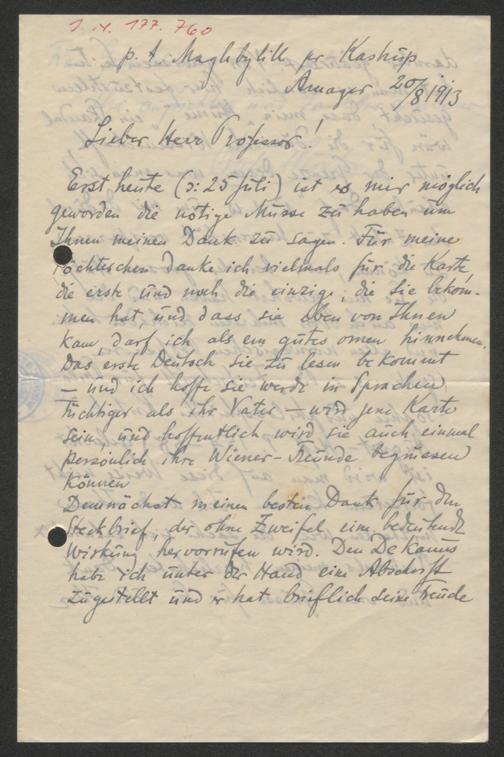 I.N. 177.760
p. t. Maglebylille pr. Kastrup
Amager 20/8 1913
Lieber Herr Professor!
Erst heute (d: 25 Juli) ist es mir möglich
geworden die nötige Musse zu haben um
Ihnen meinen Dank zu sagen. Für meine
Töchterchen danke ich vielmals für die Karte
die erste und noch die einzige, die sie bekom-
men hat, und dass sie eben von Ihnen
kam, darf ich als ein gutes omen hinnehmen.
Das erste Deutsch sie zu lesen bekommt
– und ich hoffe sie werde in Sprachen
tüchtiger als ihr Vater – wird jene Karte
sein, und hoffentlich wird sie auch einmal
persönlich ihre Wiener-Freunde begrüssen
können
Demnächst meinen besten Dank für den
Steckbrief, der ohne Zweifel eine bedeutende
Wirkung hervorrufen wird. Den Dekanus
habe ich unter der Hand eine Abschrift
zugestellt und er hat brieflich seine Freude